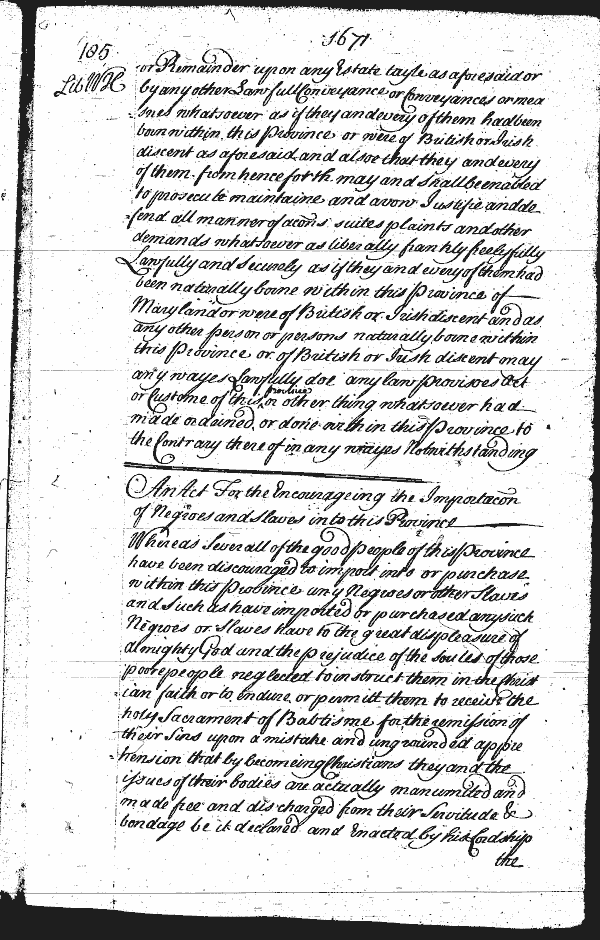 1671
185
Lib WH
or Remainder upon any Estate tayle as aforesaid or
by any other Lawfull Conveyance or Conveyances or mea
=nes whatsoever as if they and every of them had been
born within this Province or were of British or Irish
discent as aforesaid and alsoe that they and every
of them from henceforth may and shall be enabled
to prosecute maintaine and avow Justifie and de
=fend all manner of acons suites plaints and other
demands whatsoever as liberally frankly freely fully
Lawfully and securely as if they and every of them had
been naturally borne within this Province of
Maryland or were of British or Irish discent and as
any other person or persons naturally borne within
this Province or of British or Irish discent may
any wayes Lawfully doe any law provisoes Act
or Custome of this province or other thing whatsoever had
made ordained or done within this Province to
the Contrary thereof in any wayes Notwithstanding
An Act For the Encourageing the Importacon
of Negroes and Slaves into this Province
Whereas Severall of the good people of this Province
have been discouraged to import into or purchase
within this Province any Negroes or other Slaves
and such as have imported or purchased any such
Negroes or Slaves have to the great displeasure of
almighty God and the prejudice of the soules of those
poore people neglected to instruct them in the Christ
=ian faith or to endure or permitt them to receive the
holy Sacrament of Babtisme for the remission of
their Sins upon a mistake and ungrounded appre
=hension that by becomeing Christians they and the
issues of their bodies are actually manumited and
made free and discharged from their Servitude &
bondage be it declared and Enacted by his Lordship
the